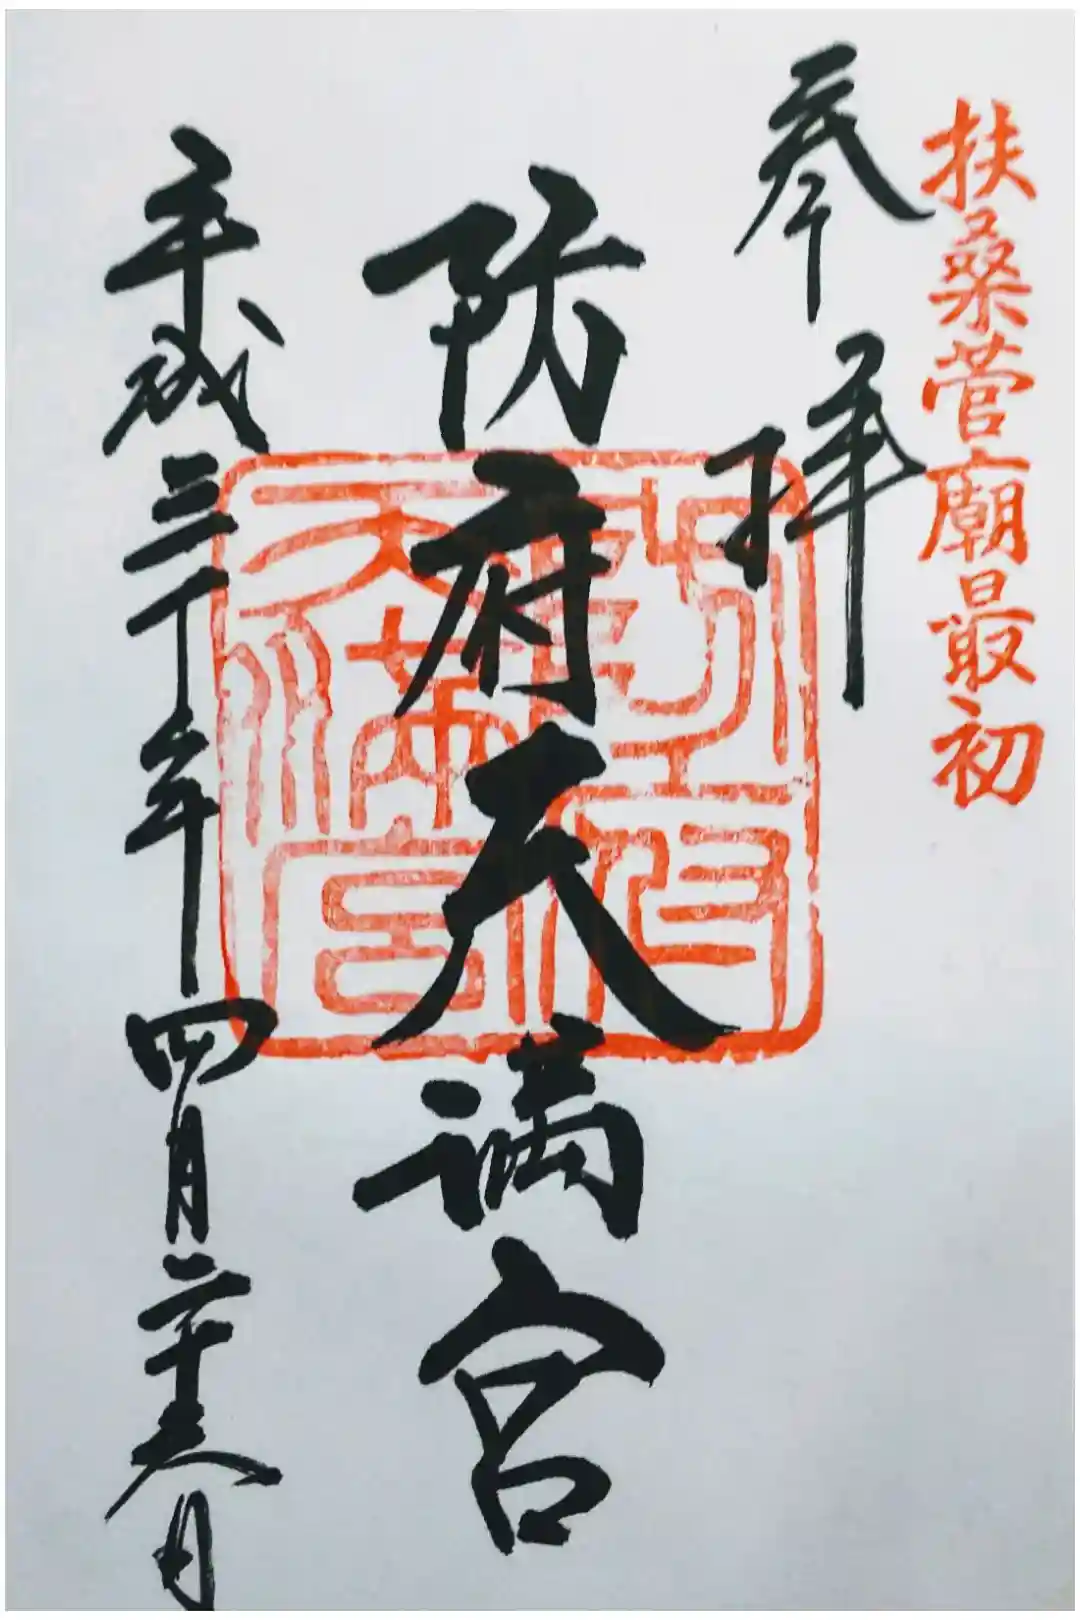 扶桑菅廟最初
奉拝
防府天満宮
防府
天満宮
平成三十年四月二十 日